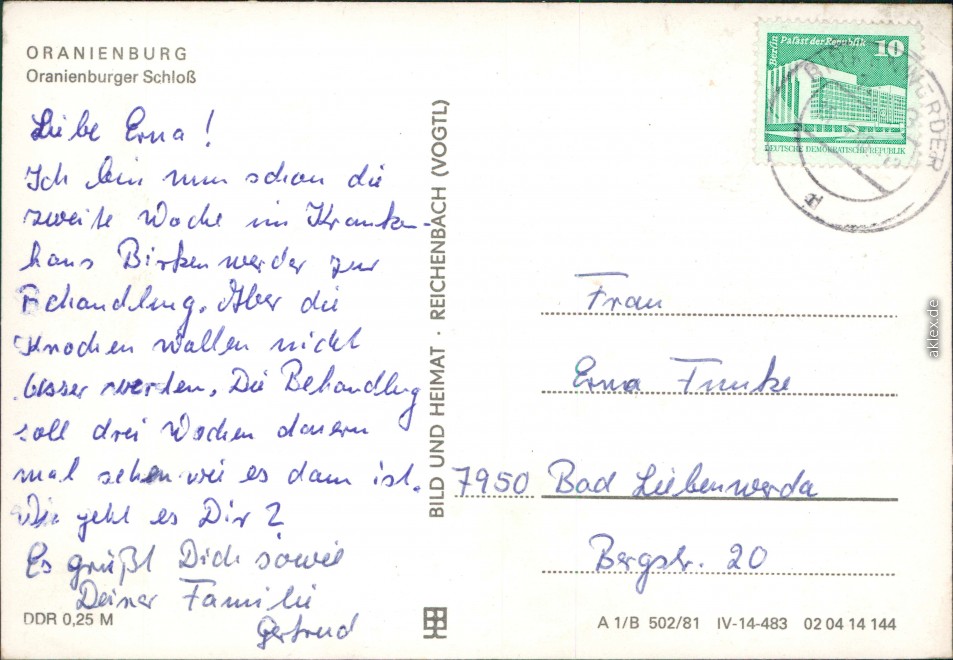 ORANIENBURG
Oranienburger Schloß
Liebe Erna!
Ich bin nun schon die
zweite Woche im Kranken-
haus Birkenwerder zur
Behandlung. Aber die
Knochen wollen nicht
besser werden. Die Behandlug
soll drei Wochen dauern
mal sehen wie es dann ist.
Wie geht es Dir?
Es grüßt Dich sowie
Deiner Familie
Gertrud
DDR 0,25 M
BILD UND HEIMAT · REICHENBACH (VOGTL)
Berlin Palast der Republik 10
DEUTSCHE DEMOKRATISCHE REPUBLIK
BIRKENWERDER
Frau
Erna Funke
7950 Bad Liebenwerda
Bergstr. 20
A 1/B 502/81 IV-14-483 02 04 14 144
aklex.de